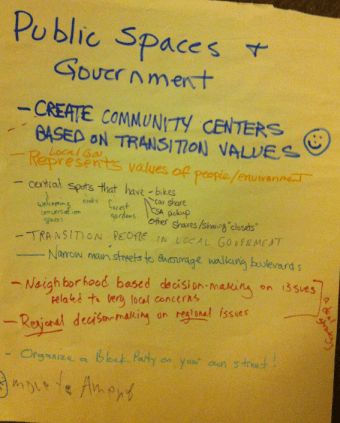 Public Spaces +
Government
- CREATE COMMUNITY CENTERS
BASED ON TRANSITION VALUES
Local Gov
- Represents values of people/environment
- central spots that have - bikes
car share
welcoming conversation spaces
forest gardens
CSA pickup
other shares/sharing "closets"
- TRANSITION PEOPLE IN LOCAL GOVERNMENT
- Narrow main streets to encourage walking boulevards
- Neighborhood based decision-making on issues
related to very local concerns
- Regional decision-making on regional issues
- Organize a Block Party on your own street!